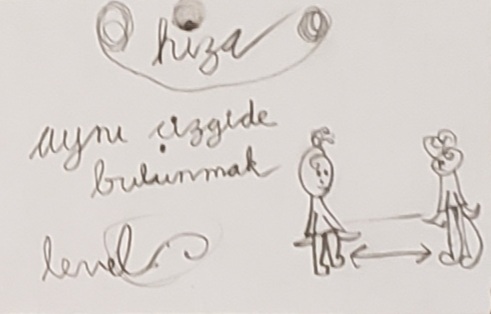 hiza
aynı çizgide
bulunmak
level